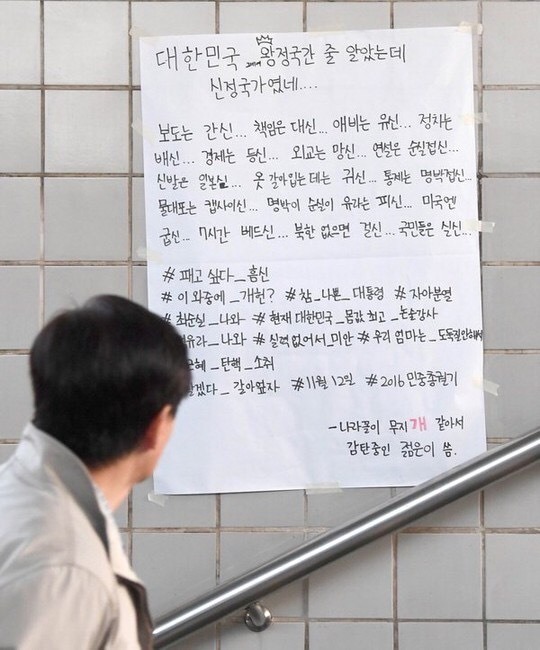 대한민국 왕정국간 줄 알았는데
신정국가였네....
보도는 간신... 책임은 대신... 애비는 유신... 정치는
배신... 경제는 등신... 외교는 망신... 연설은 순실접신...
신발은 일본실... 옷 갈아입는데는 귀신... 통제는 명박접신...
물대포는 캡사이신... 명박이 순실이 유라는 피신... 미국엔
굽신... 7시간 베드신... 북한 없으면 걸신... 국민들은 실신...
#패고 싶다_흠신
#이 와중에_개헌? #참_나쁜_대통령 #자아분열
#최순실_나와 #현재 대한민국_몸값 최고_논술강사
유라_나와 #실력 없어서_미안 #우리 엄마는_도둑질 안해서
근혜_탄핵_소취
갈아엎자 #11월 12일 #2016 민중총궐기
-나라꼴이 무지개 같아서
감탄중인 젊은이 씀.